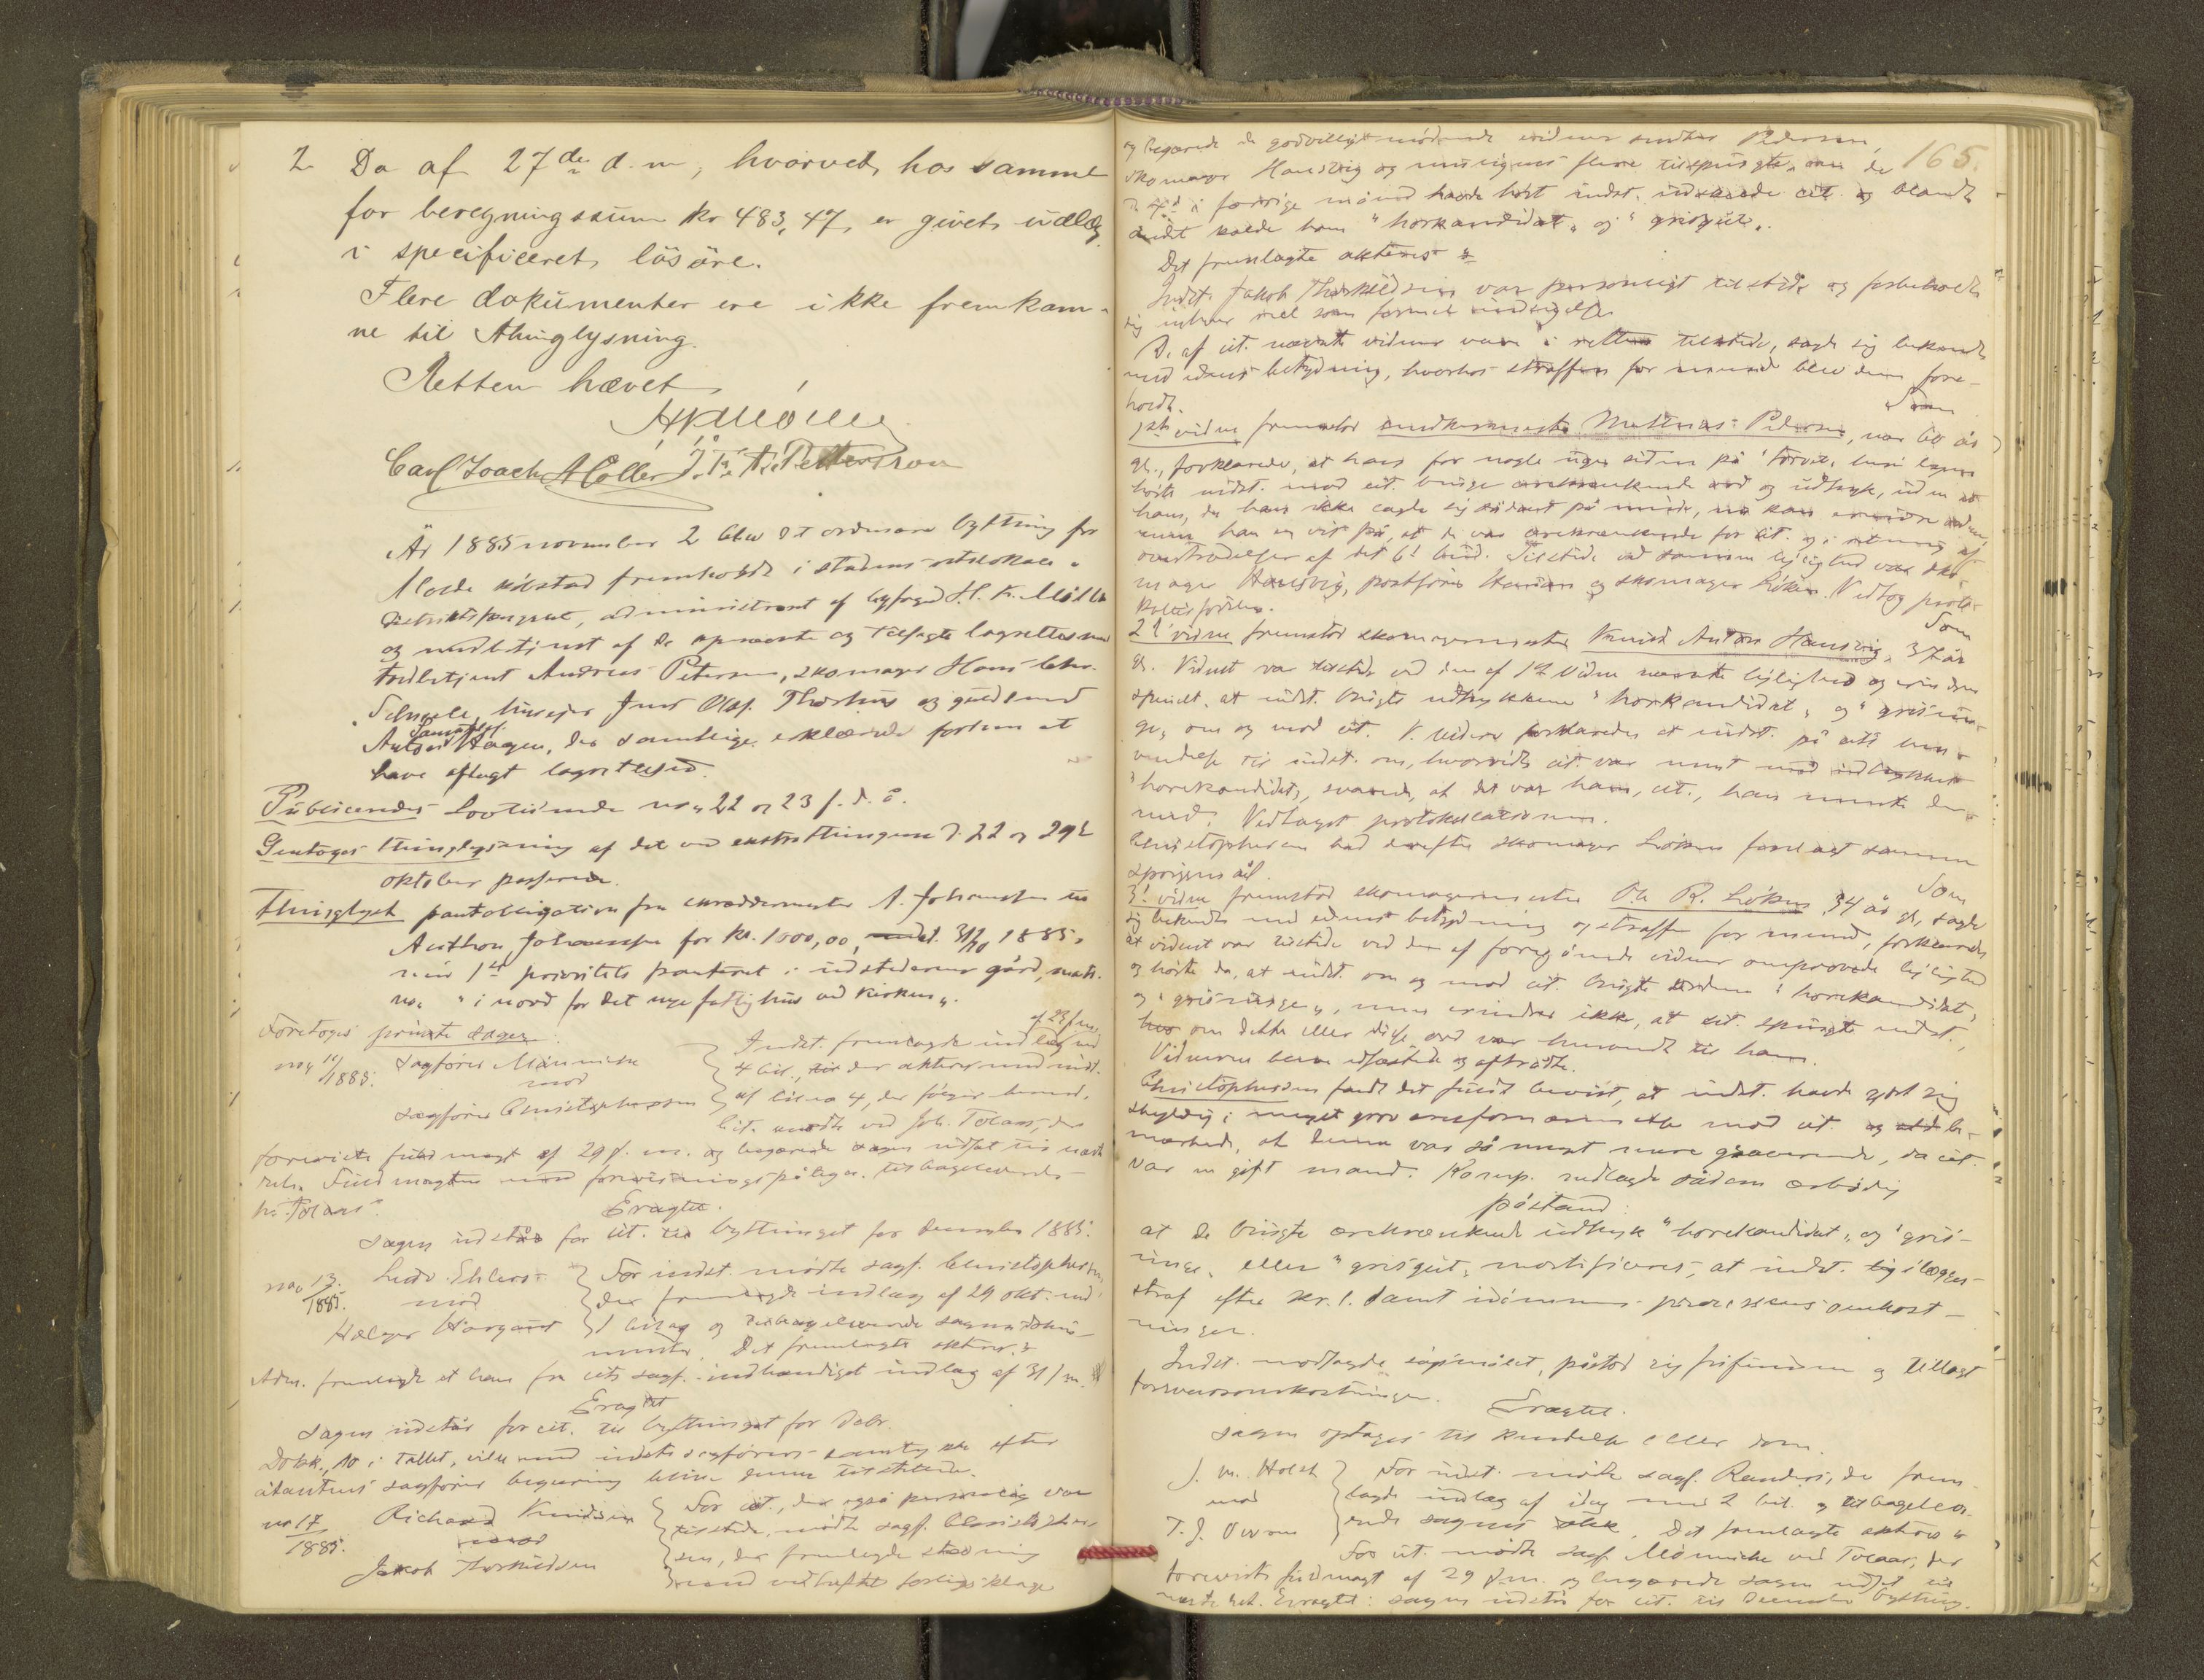 2 Do af 27de d. m., hvorved hos samme
for beregningssum kr 483,47, er givet udlæg
i specificeret løsøre.
Flere dokumenter ere ikke fremkom-
ne til thinglysning.
Retten hævet
Carl Joach Möller J. K. Pettersson
År 1885 november 2 blev et ordinære bything for
Molde kjøbstad fremholdt i stadens retslokale
administreret af byfoged H. K. Möller
og medbetjent af de opnævnte og tilsagte lagrettesmænd
toldbetjent Andreas Petersen, skomager Hans
Schjele, huseier Jens Olaf Thorhus og guldsmed
Anton Hagen, der samtlige erklærede forhen at
have aflagt lagrettesed.
Publicendes Lovtidende no. 22 og 23 f. d. å.
Gentoges thinglysning af det ved extrathingene d. 22 og 29de
oktober passerede.
Thinglyst pantobligation fra skræddermester A. Johansen til
Anthon Johannessen for kr. 1000,00, dat. 31/10 1885,
mod 1st prioritets panteret i udstederens gård, matr.
no. " i nord for det nye fattighus ved kirken".
Foretoges private sager:
no. 11/1885. Sagfører Mönniche
mod
sagfører Christophersen
Indst. fremlagde indlæg af 23 f. m. med
4 bil., der akteres med undt.
af bil. no 4, der følger hermed.
Cit. mødte ved Joh. Tolaas, der
foreviste fuldmagt af 29 f. m. og begærede sagen udsat til næste
ret. Fuldmagten forevisningspåtegn. tilbageleverede
hr. Tolaas.
Eragtet.
Sagen udstår for cit. til bythinget for december 1885.
no. 13/1885. Ludv. Ehlers
mod
Holger Horgard
For indst. mødte sagf. Christophersen
der fremlagde indlæg af 29 okt. med
1 bilag og tilbageleverede sagens doku-
menter. Det fremlagte akteres.
Adm. fremlagde et ham fra cits sagf. indhændiget indlæg af 31 f. m.
Eragtet
Sagen udstår for cit. til bythinget for Decbr.
Dokk., 10 i tallet, vilde med indsts sagførers samtykke efter
citantens sagførers begjæring blive denne tilstillede.
no 17/1885. Richard Knudsen
mod
Jakob Thorkildsen
For cit., der også personlig var
tilstede, mødte sagf. Christopher-
sen, der fremlagde stævning
med vedhæftet forligsklage
165.
og begærede de godvilligt mødende vidner Mathias Pedersen,
skomager Hansvig og flere tilspurgte, om de
i forrige måned havde hørt indst. udskælde cit. og blandt
andet kalde ham "horkandidat" og "grisgut".
Det fremlagte akteres
Indst. Jakob Thorkildsen var personligt tilstede og forbeholdt
sig enhver reel som formel indsigelse.
De af cit. nævnte vidner vare i retten tilstede, sagde sig bekendt
med edens betydning, hvorhos straffen for mened blev dem fore-
holdt. Som
1ste vidne fremstod Mathias Pedersen, var 60 år
gl., forklarede, at han for nogle uger siden på torvet her i byen
hørte indst. mod cit. bruge ærekrænkende ord og udtryk, uden at
han, da han ikke lagde sig sådant på minde, nu kan erindre ordene,
men han er vis på, at de var ærekrænkende for cit. og i retning af
overtrædelser af det 6t bud. Tilstede ved samme lejlighed var sko-
mager Hansvig, postfører og skomager Löken. Vedtog proto-
kollationen. Som
2t vidne fremstod skomagermester Knud Anton Hansvig, 37 år
gl. Vidnet var tilstede ved den af 1st vidne nævnte lejlighed og erindrer
specielt, at indst. brugte udtrykkene "horkandidat" og "grisun-
ge" om og mod cit. V. videre forklaredes at indst. på cits hen-
vendelse til indst. om, hvorvidt cit. var ment med udtrykket
"horekandidat", svarede, at det var ham, cit., han mente der-
med. Vedtaget protokollationen.
Christophersen bad derefter skomager Löken forelagt samme
spørgsmål. Som
3t vidne fremstod skomagermester Ole R. Löken, 34 år gl., sagde
sig bekendt med edens betydning og straffen for mened, forklarede
at vidnet var tilstede ved den af foregående vidner omprovede lejlighed
og hørte da, at indst. om og mod cit. brugte ordene "horekandidat"
og "grisunge", men erindrer ikke, at cit. spurgte indst.,
om dette eller disse ord var henvendt til ham.
Vidnerne bleve edfæstede og aftrådte.
Christophersen fandt det fuldt bevist, at indst. havde gjort sig
skyldig i meget grov æresfornærmelse mod cit. og be-
mærkede, at denne var så meget mere graverende, da cit.
var en gift mand. Komp. nedlagde sådan ærbødig
påstand:
at de brugte ærekrænkende udtryk "horekandidat" og "gris-
unge" eller "grisgut" mortificeres, at indst. ilægges
straf efter kr. l. samt idømmes processens omkost-
ninger.
Indst. modsagde søgsmålet, påstod sig frifunden og tillagt
forsvarsomkostninger. Eragtet.
Sagen optages til kendelse eller dom.
J. M. Holst
mod
T. J. Owren
For indst. mødte sagf. Randers, der frem-
lagde indlæg af idag med 2 bil. og tilbagelev-
erede sagens dokk. Det fremlagte akteres
For cit. mødte sagf. Mönniche ved Tolaas, der
foreviste fuldmagt af 29 f. m. og begærede sagen udsat til
næste ret. Eragtet: Sagen udstår for cit. til December bything.